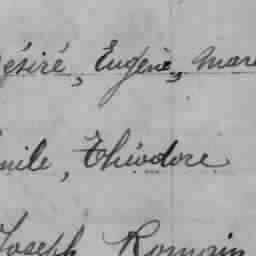 ésiré, Eugène, Mar
mile, Théodore
Joseph Romain